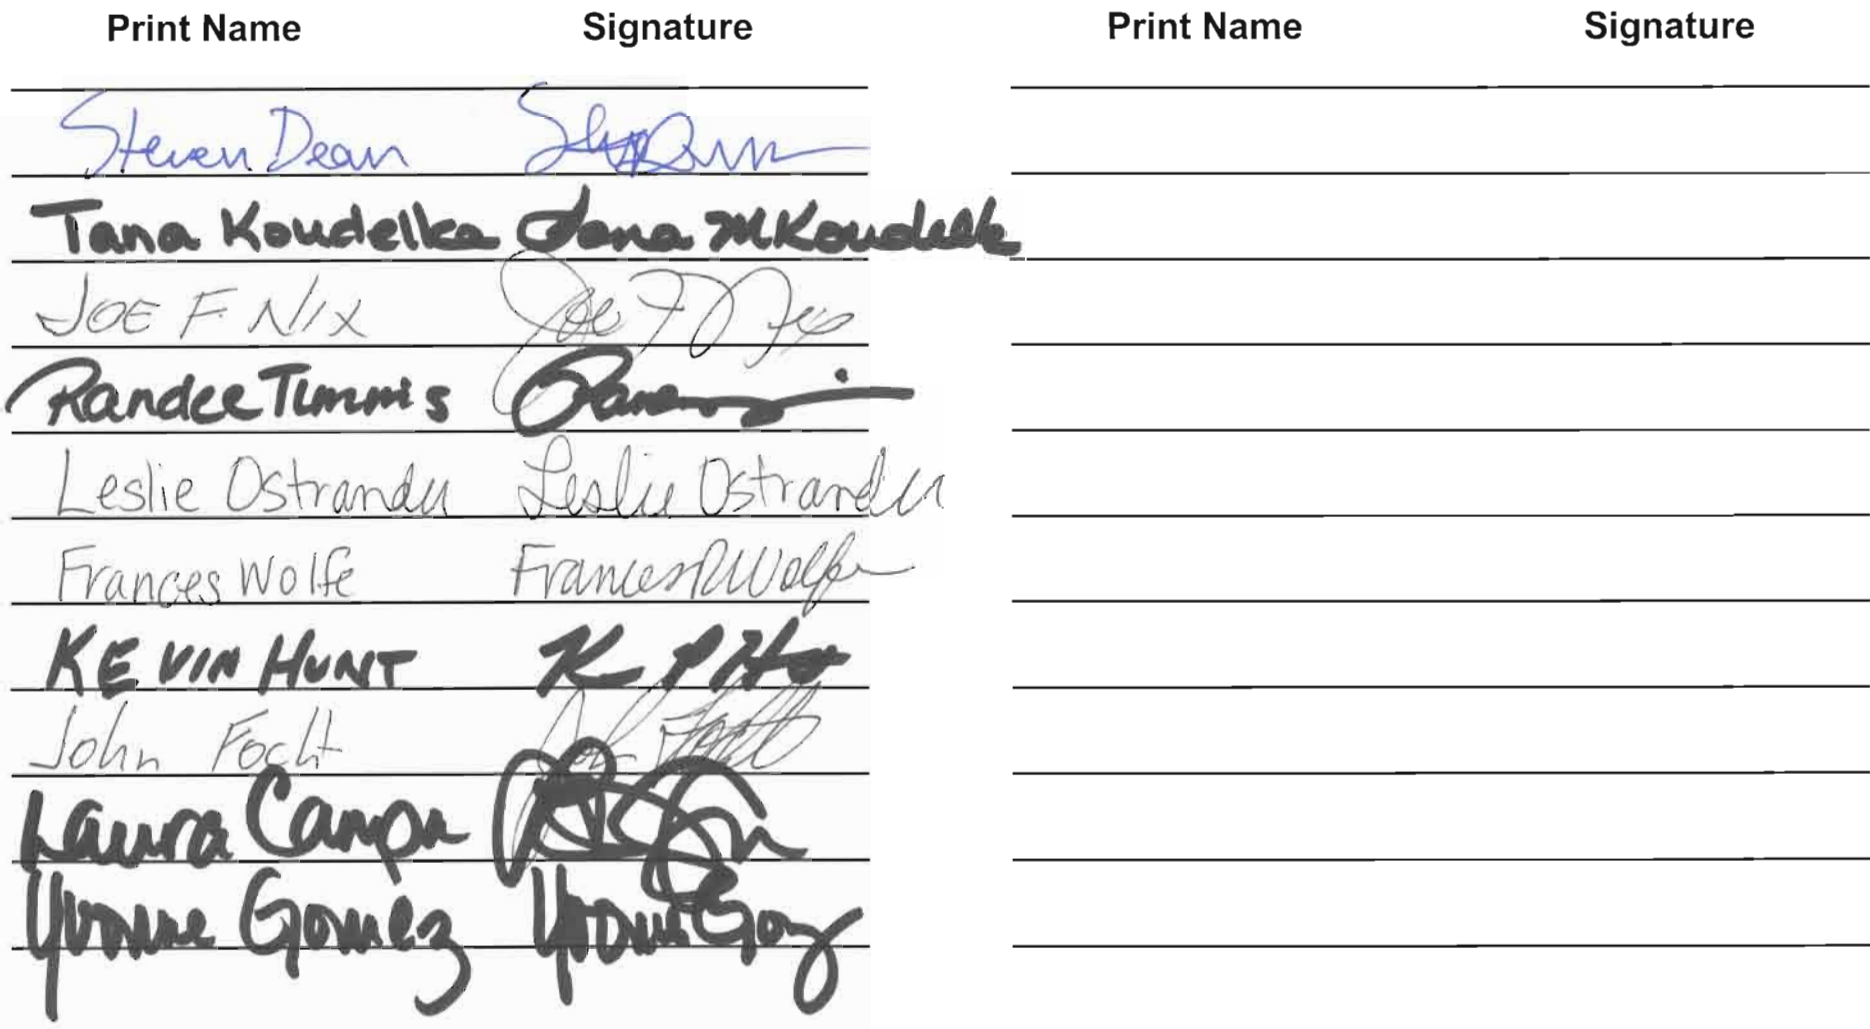 Print Name Signature Print Name Signature
Steven Dean
Tana Koudelka Tana M Koudelka
JOE F NIX Joe F Nix
Randee Timmis
Leslie Ostrander Leslie Ostrander
Frances Wolfe Frances R Wolfe
KEVIN HUNT K P
John Focht John Focht
Laura
Yvonne Gomez Yvonne